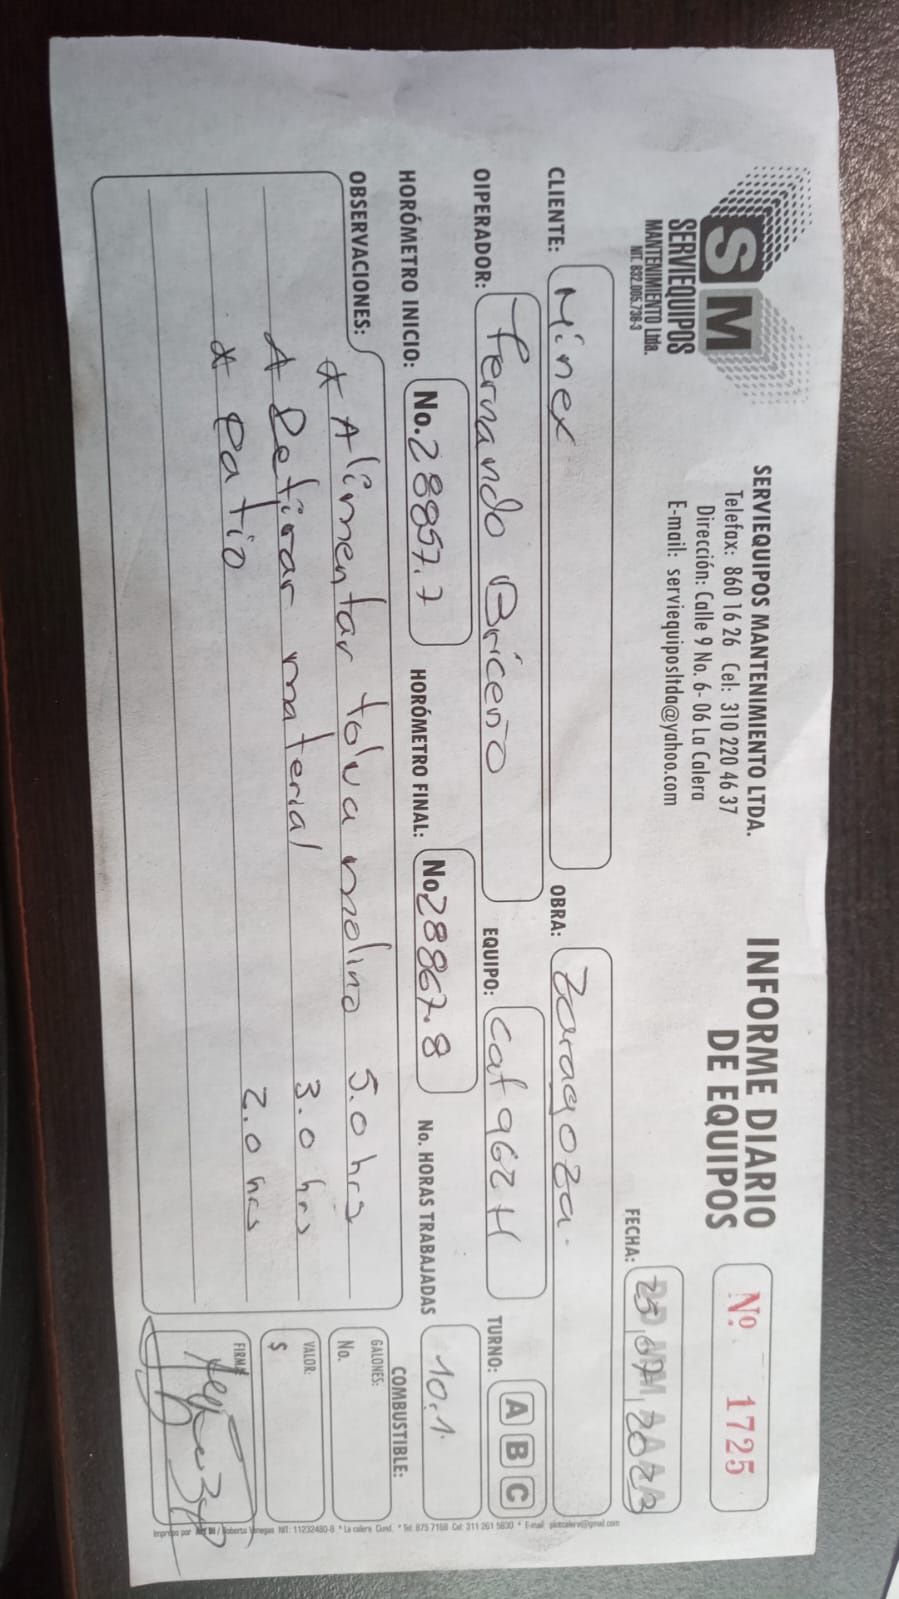 SM
SERVIEQUIPOS
MANTENIMIENTO Ltda.
NIT. 832.005.738-3
SERVIEQUIPOS MANTENIMIENTO LTDA.
Telefax: 860 16 26 Cel: 310 220 46 37
Dirección: Calle 9 No. 6- 06 La Calera
E-mail: serviequiposltda@yahoo.com
INFORME DIARIO
DE EQUIPOS
Nº 1725
FECHA: 25 07
CLIENTE: Minex
OBRA: Zaragoza.
OIPERADOR: Fernando Briceño
EQUIPO: Cat 962H
TURNO: A B C
HORÓMETRO INICIO: No. 28857.7
HORÓMETRO FINAL: No 28867.8
No. HORAS TRABAJADAS 10.1.
OBSERVACIONES:
* Alimentar tolva molino 5.0 hrs
* Retirar material 3.0 hrs
* Patio 2.0 hrs
COMBUSTIBLE:
GALONES:
No.
VALOR:
$
FIRMA
Impreso por / Roberto Vanegas NIT: 11232480-8 * La calera Cund. * Tel: 875 7158 Cel: 311 261 5830 * E-mail: